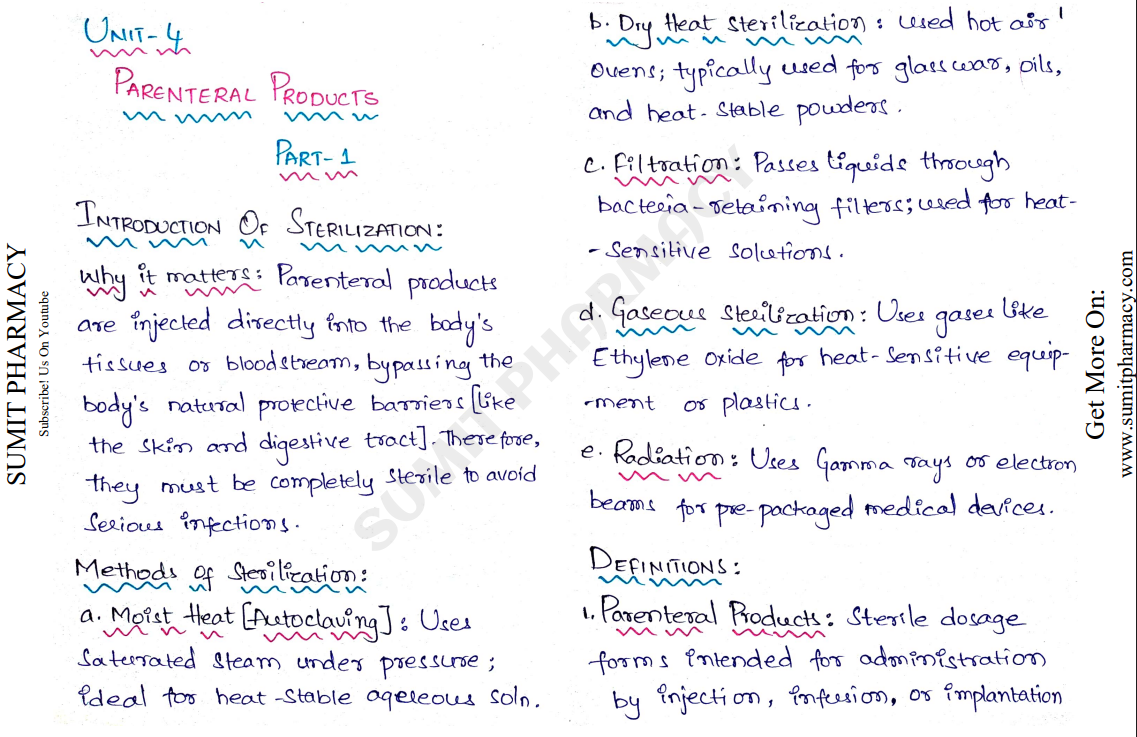 UNIT-4
PARENTERAL PRODUCTS
PART-1
INTRODUCTION OF STERILIZATION:
Why it matters: Parenteral products
are injected directly into the body's
tissues or bloodstream, bypassing the
body's natural protective barriers [like
the skin and digestive tract]. Therefore,
they must be completely sterile to avoid
serious infections.
Methods of sterilization:
a. Moist Heat [Autoclaving]: Uses
saturated steam under pressure;
ideal for heat-stable aqueous soln.
b. Dry Heat Sterilization: used hot air
ovens; typically used for glasswar, oils,
and heat-stable powders.
c. Filtration: Passes liquids through
bacteria-retaining filters; used for heat-
-sensitive solutions.
d. Gaseous Sterilization: Uses gases like
Ethylene oxide for heat-sensitive equip-
-ment or plastics.
e. Radiation: Uses Gamma rays or electron
beams for pre-packaged medical devices.
DEFINITIONS:
1. Parenteral Products: Sterile dosage
forms intended for administration
by injection, infusion, or implantation
SUMIT PHARMACY
Subscribe! Us On Youtube
SUMIT PHARMACY
Get More On:
www.sumitpharmacy.com